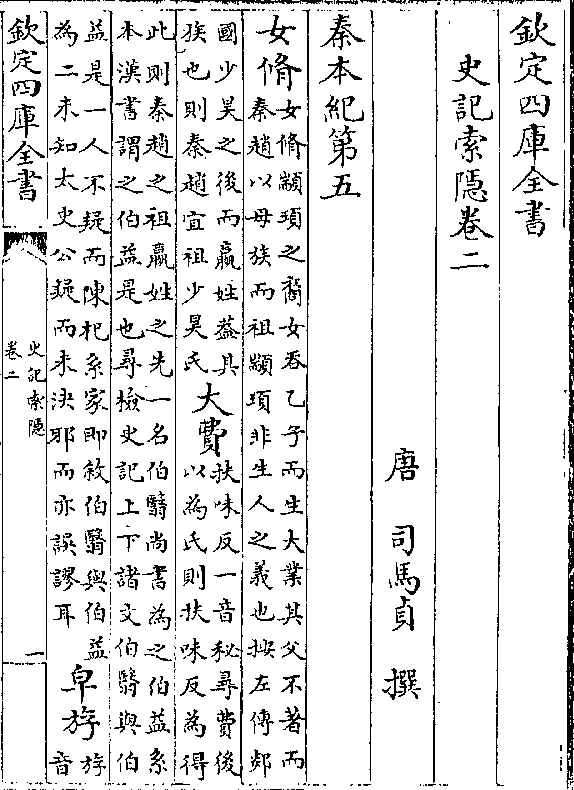 欽定四庫全書
史記索隱卷二
唐 司馬貞 撰
秦本紀第五
女脩
女脩顓頊之裔女吞乙子而生大業其父不著而
秦趙以母族而祖顓頊非生人之義也按左傳郯
國少昊之後而嬴姓葢其
族也則秦趙宜祖少昊氏
大費
扶味反一音秘尋費後
以為氏則扶味反為得
此則秦趙之祖嬴姓之先一名伯翳尚書為之伯益系
本漢書謂之伯益是也尋檢史記上下諸文伯翳與伯
益是一人不疑而陳杞系家即敘伯翳與伯益
為二未知太史公疑而未決耶而亦誤謬耳
皁斿
斿
音
欽定四庫全書
史記索隱
卷二
一